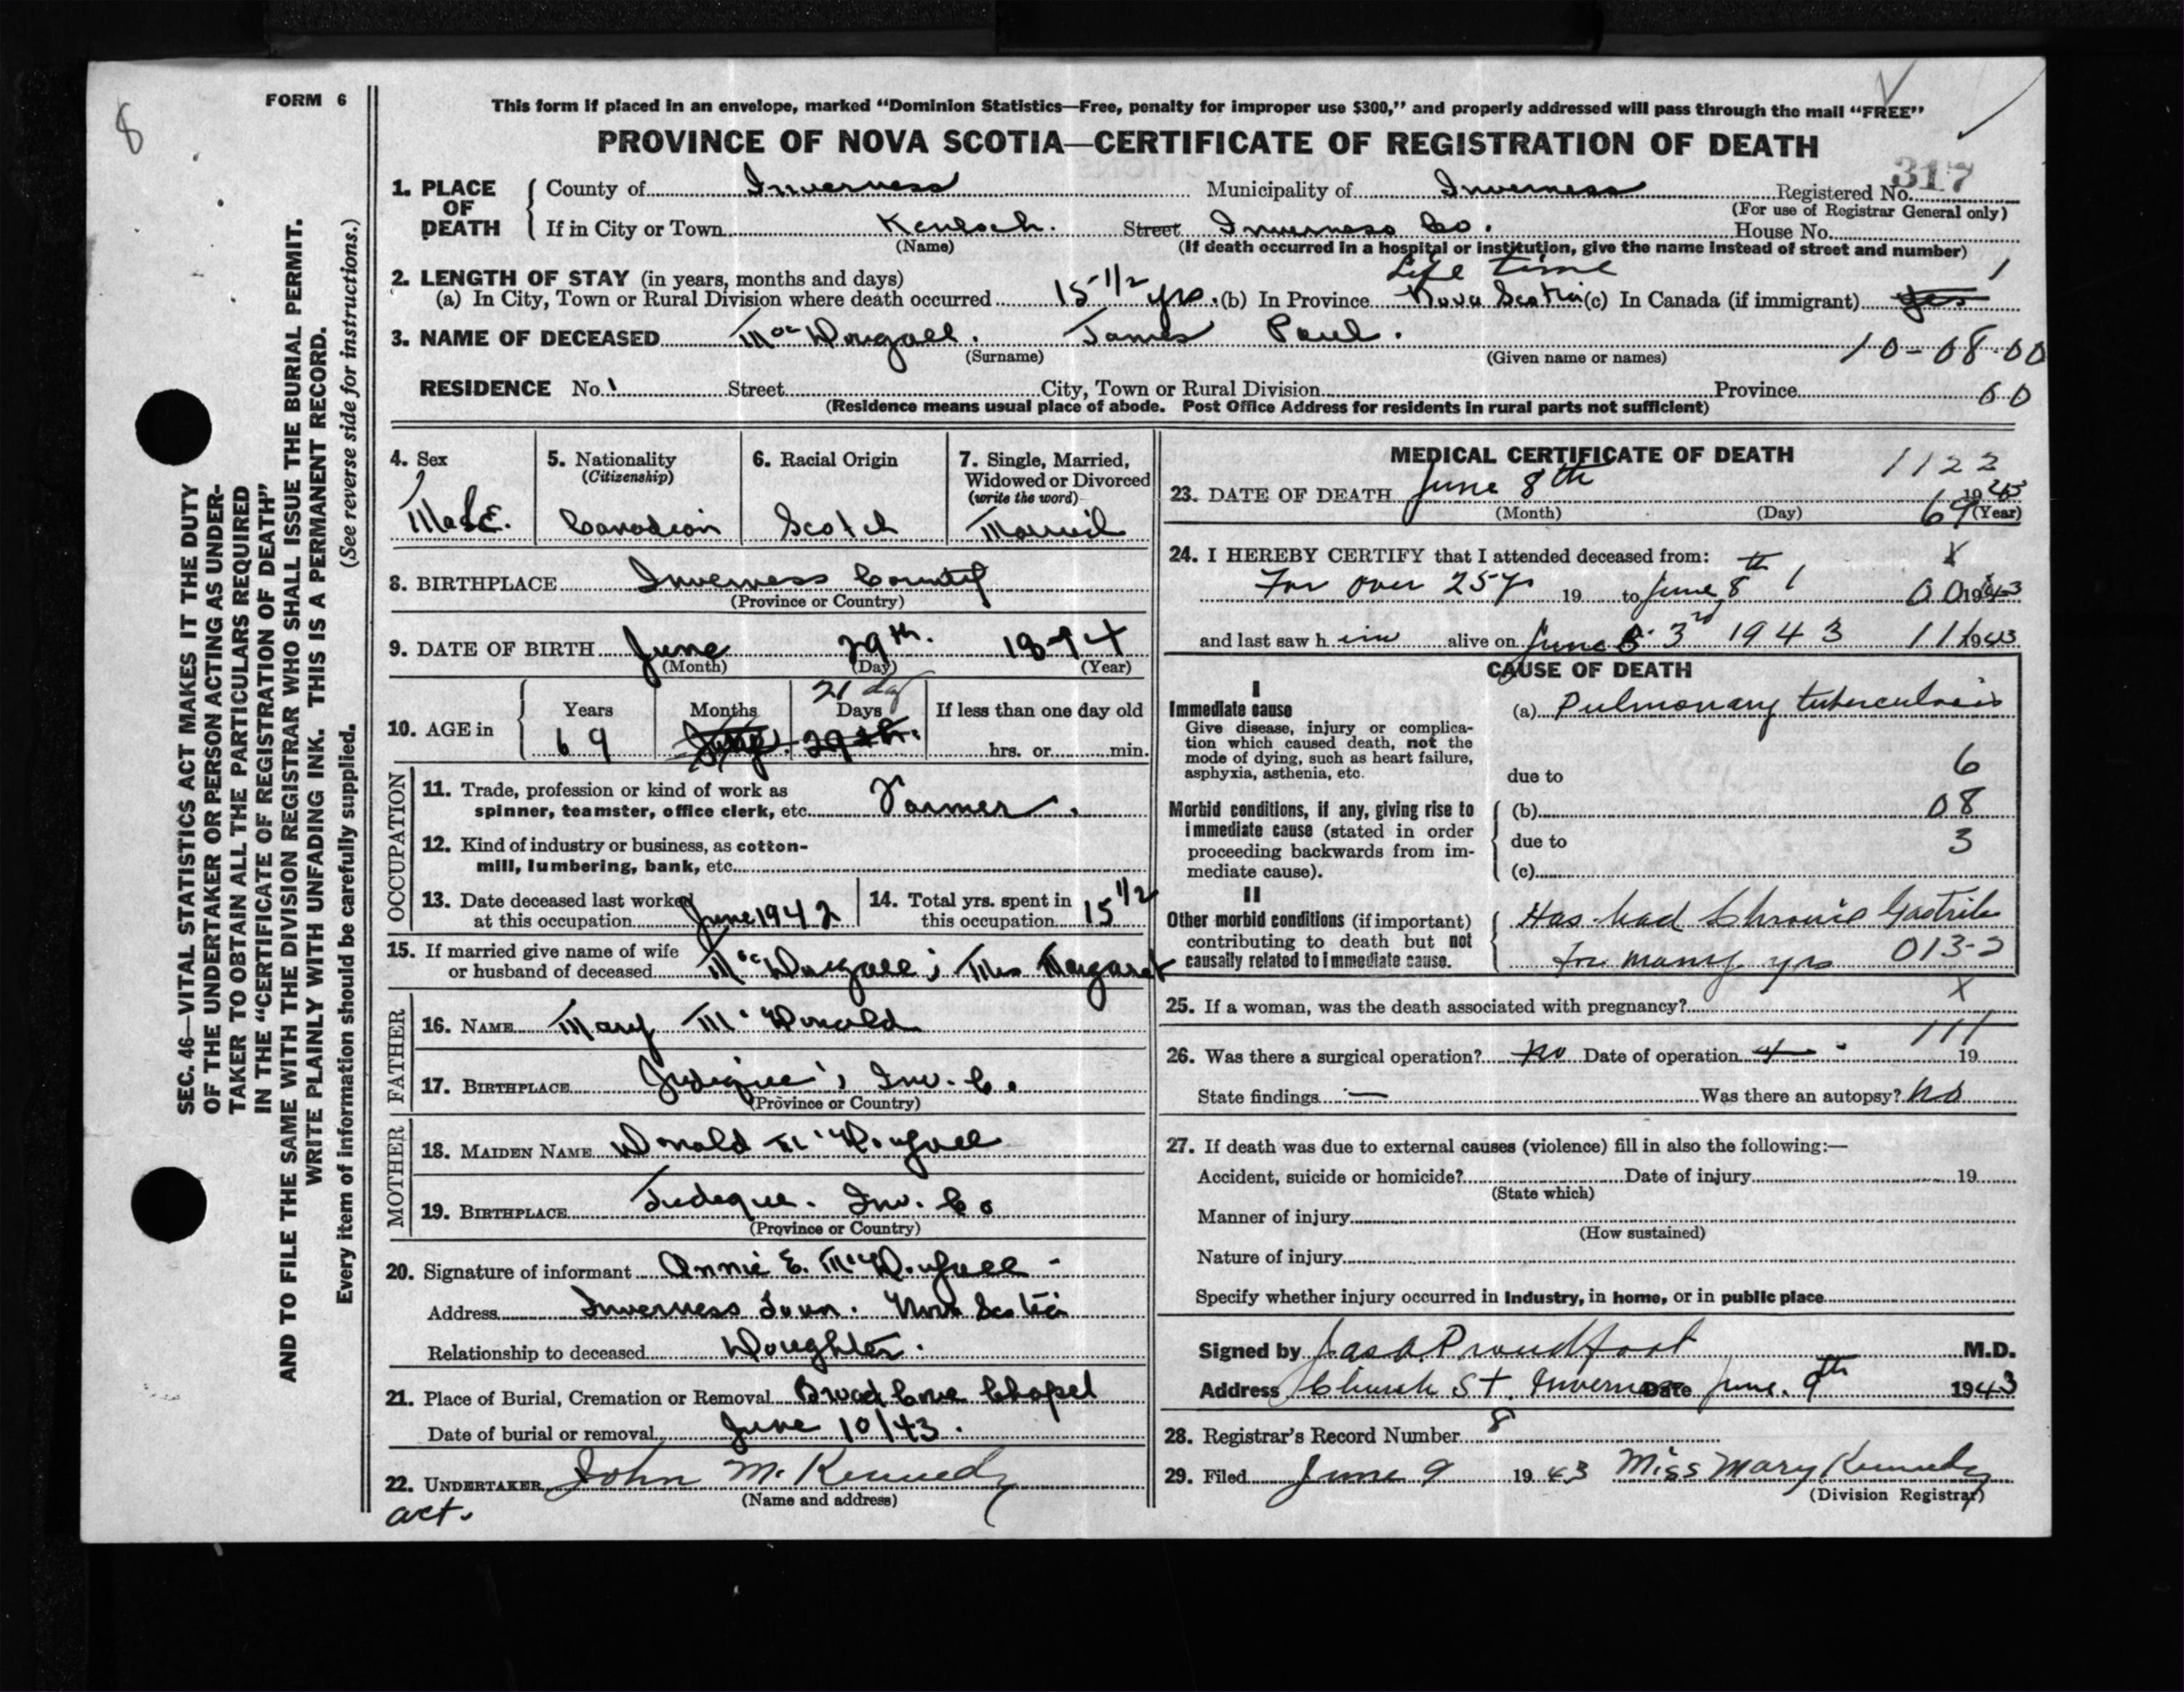 8
FORM 6
This form if placed in an envelope, marked “Dominion Statistics—Free, penalty for improper use $300,” and properly addressed will pass through the mail “FREE”
PROVINCE OF NOVA SCOTIA—CERTIFICATE OF REGISTRATION OF DEATH
317
1. PLACE OF DEATH
County of Inverness Municipality of Inverness Registered No.
(For use of Registrar General only)
If in City or Town Kenloch. Street Inverness Co. House No.
(Name) (If death occurred in a hospital or institution, give the name instead of street and number)
2. LENGTH OF STAY (in years, months and days) Life time 1
(a) In City, Town or Rural Division where death occurred 15 1/2 yrs. (b) In Province Nova Scotia (c) In Canada (if immigrant) yes
3. NAME OF DECEASED MacDougall. James Paul.
(Surname) (Given name or names) 10-08-00
RESIDENCE No. Street City, Town or Rural Division Province 60
(Residence means usual place of abode. Post Office Address for residents in rural parts not sufficient)
SEC. 46—VITAL STATISTICS ACT MAKES IT THE DUTY
OF THE UNDERTAKER OR PERSON ACTING AS UNDER-
TAKER TO OBTAIN ALL THE PARTICULARS REQUIRED
IN THE “CERTIFICATE OF REGISTRATION OF DEATH”
AND TO FILE THE SAME WITH THE DIVISION REGISTRAR WHO SHALL ISSUE THE BURIAL PERMIT.
WRITE PLAINLY WITH UNFADING INK. THIS IS A PERMANENT RECORD.
Every item of information should be carefully supplied. (See reverse side for instructions.)
4. Sex
Male.
5. Nationality
(Citizenship)
Canadian
6. Racial Origin
Scotch
7. Single, Married,
Widowed or Divorced
(write the word)
Married
8. BIRTHPLACE Inverness County
(Province or Country)
9. DATE OF BIRTH June 29th. 1874
(Month) (Day) (Year)
10. AGE in
Years Months Days If less than one day old
21 day
69 29th. hrs. or min.
OCCUPATION
11. Trade, profession or kind of work as
spinner, teamster, office clerk, etc. Farmer.
12. Kind of industry or business, as cotton-
mill, lumbering, bank, etc.
13. Date deceased last worked
at this occupation June 1942
14. Total yrs. spent in
this occupation 15 1/2
15. If married give name of wife
or husband of deceased MacDougall; Mrs Margaret
FATHER
16. NAME Mary McDonald
17. BIRTHPLACE Judique, Inv. Co.
(Province or Country)
MOTHER
18. MAIDEN NAME Donald McDougall
19. BIRTHPLACE Judique. Inv. Co
(Province or Country)
20. Signature of informant Annie E. McDougall -
Address Inverness Town. Nova Scotia
Relationship to deceased Daughter.
21. Place of Burial, Cremation or Removal Broad Cove Chapel
Date of burial or removal June 10/43.
22. UNDERTAKER John M. Kennedy
(Name and address)
act.
MEDICAL CERTIFICATE OF DEATH
1122
23. DATE OF DEATH June 8th 1943
(Month) (Day) (Year)
69
24. I HEREBY CERTIFY that I attended deceased from: X
For over 25 yr 19 to June 8th 1 00 1943
and last saw h im alive on June 3rd 1943 111 1943
CAUSE OF DEATH
I
Immediate cause
Give disease, injury or complica-
tion which caused death, not the
mode of dying, such as heart failure,
asphyxia, asthenia, etc.
(a) Pulmonary tuberculosis
due to 6
Morbid conditions, if any, giving rise to
immediate cause (stated in order
proceeding backwards from im-
mediate cause).
(b) 08
due to 3
(c)
II
Other morbid conditions (if important)
contributing to death but not
causally related to immediate cause.
Has had Chronic Gastritis
for many yrs 013-2
25. If a woman, was the death associated with pregnancy? X
26. Was there a surgical operation? no Date of operation 19 111
State findings — Was there an autopsy? no
27. If death was due to external causes (violence) fill in also the following:—
Accident, suicide or homicide? Date of injury 19
(State which)
Manner of injury
(How sustained)
Nature of injury
Specify whether injury occurred in Industry, in home, or in public place
Signed by Jas A. Proudfoot M.D.
Address Church St. Inverness Date June. 9th 1943
28. Registrar's Record Number 8
29. Filed June 9 1943 Miss Mary Kennedy
(Division Registrar)